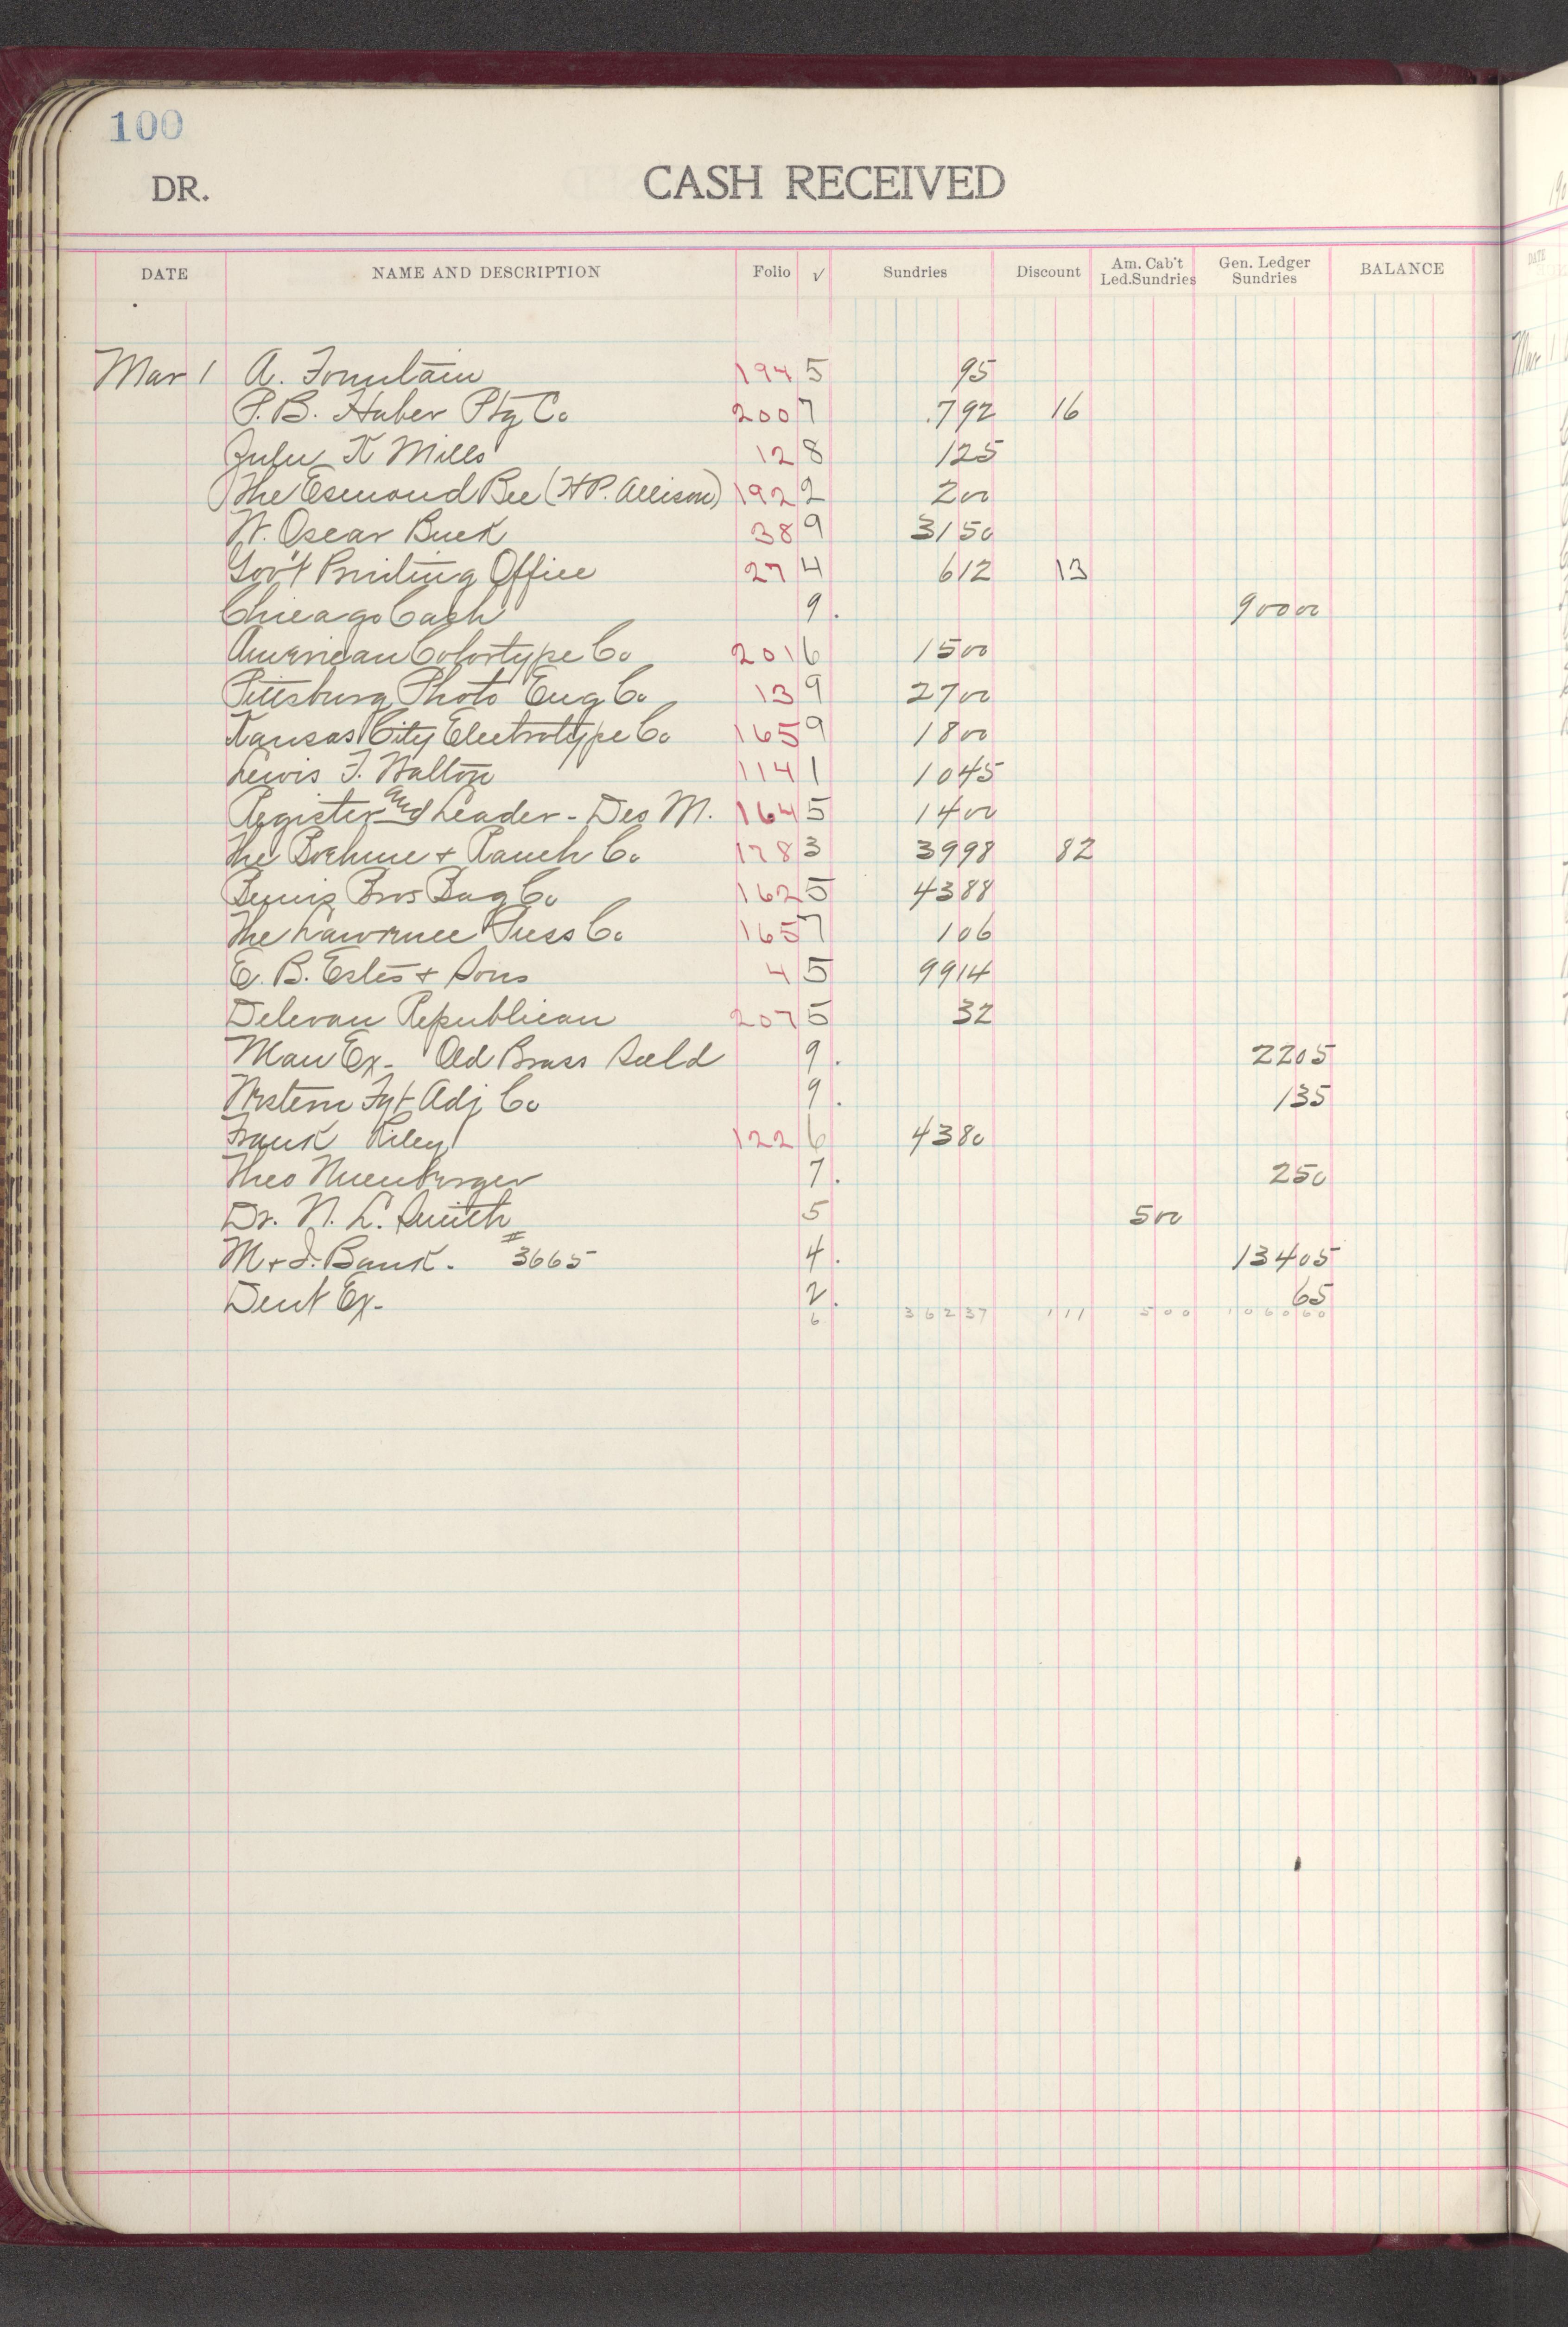 100
DR. CASH RECEIVED
DATE NAME AND DESCRIPTION Folio √ Sundries Discount Am. Cab't Led.Sundries Gen. Ledger Sundries BALANCE
Mar 1 A. Fountain 194 5 95
P. B. Haber Ptg Co 200 7 792 16
K Mills 12 8 125
The Esmond Bee (H.P. Allison) 192 2 200
W. Oscar Buck 38 9 3150
Gov't Printing Office 27 4 612 13
Chicago Cash 9. 90000
American Colortype Co 201 6 1500
Pittsburg Photo Eng Co 13 9 2700
Kansas City Electrotype Co 165 9 1800
Lewis F. Walton 114 1 1045
Register and Leader - Des M. 164 5 1400
The Boehme + Rauch Co 178 3 3998 82
Bemis Bros Bag Co 162 5 4388
The Lawrence Press Co 165 7 106
E. B. Estes + Sons 4 5 9914
Delevan Republican 207 5 32
Man Ex - Old Brass Sold 9. 2205
Western Fgt Adj Co 9. 135
Frank Riley 122 6 4380
Theo Nuenberger 7. 250
Dr. N. L. Smith 5 500
M + I. Bank. # 3665 4. 13405
Dent Ex - 2. 65
6 36237 111 500 106060